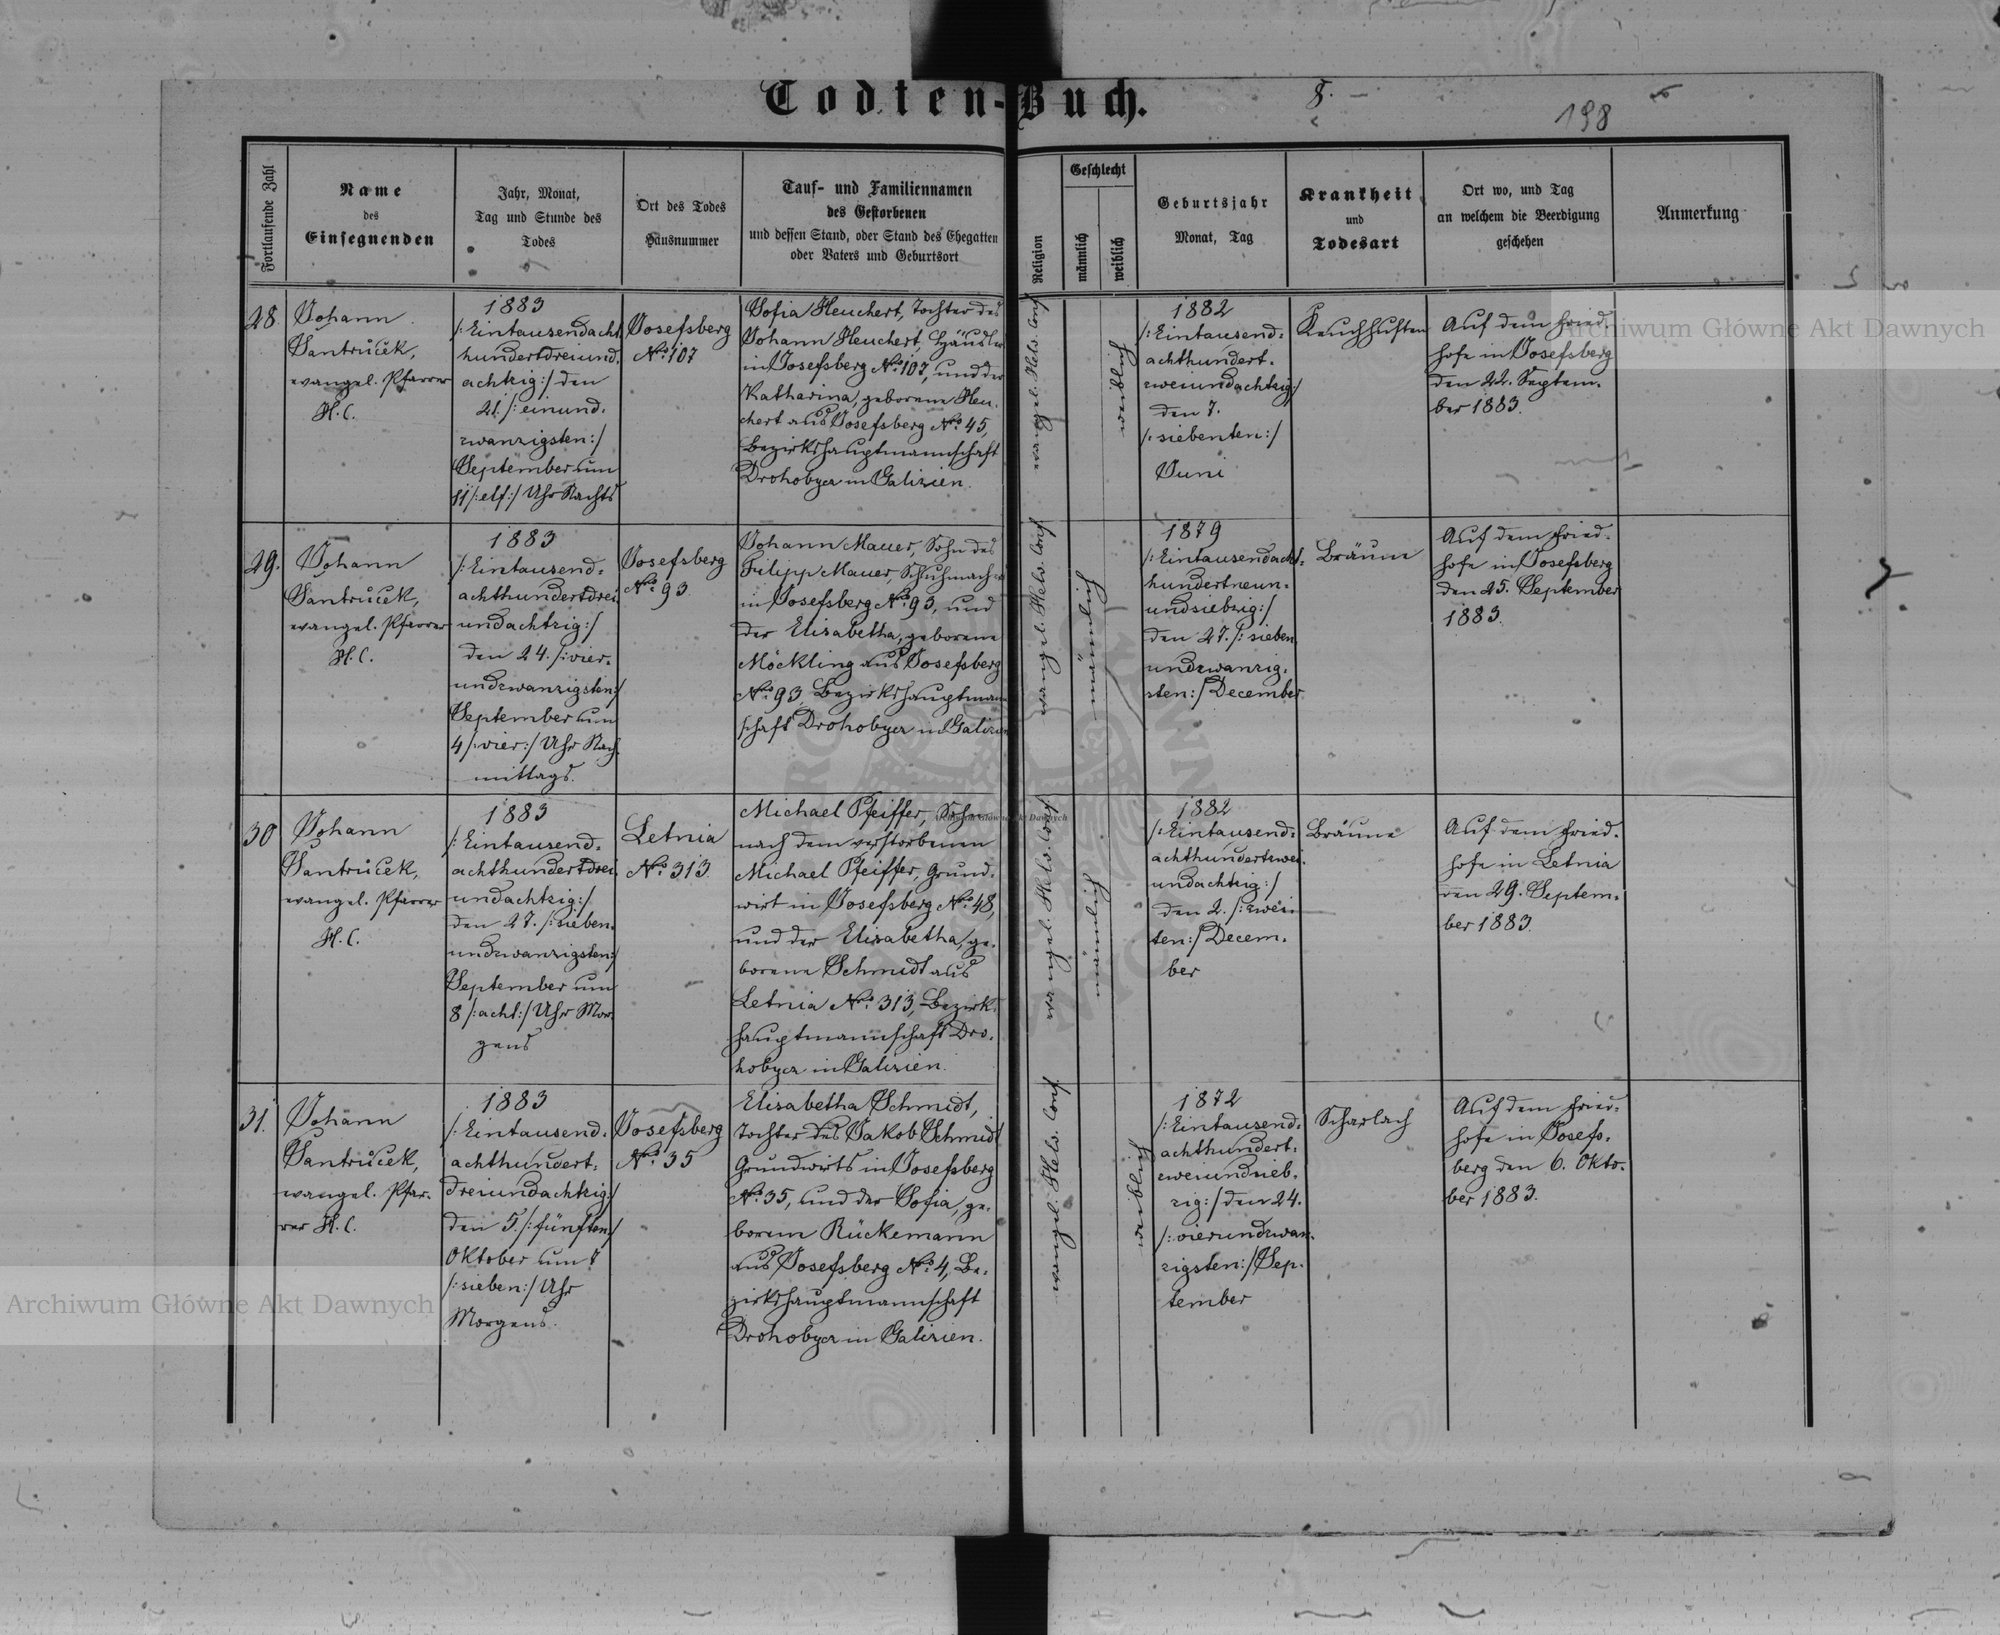 Todten-Buch.
8.
198
Fortlaufende Zahl
Name
des
Einsegnenden
Jahr, Monat,
Tag und Stunde des
Todes
Ort des Todes
Hausnummer
Tauf- und Familiennamen
des Gestorbenen
und dessen Stand, oder Stand des Ehegatten
oder Vaters und Geburtsort
Religion
Geschlecht
männlich
weiblich
Geburtsjahr
Monat, Tag
Krankheit
und
Todesart
Ort wo, und Tag
an welchem die Beerdigung
geschehen
Anmerkung
28
Johann
Santrůček,
evangel. Pfarrer
H.C.
1883
/:Eintausendacht
hundertdreiund.
achtzig:/ den
21. /:einund.
zwanzigsten:/
September um
11 /:elf:/ Uhr Nachts
Josefsberg
No. 107
Sofia Heuchert, Tochter des
Johann Heuchert, Häusler
in Josefsberg No. 107, und der
Katharina, geborene Heu.
chert aus Josefsberg No. 45,
Bezirkshauptmannschaft
Drohobycz in Galizien.
evangel. Helv. Conf.
weiblich
1882
/:Eintausend.
achthundert.
zweiundachtzig:/
den 7.
/:siebenten:/
Juni
Keuchhusten
Auf dem Fried.
hofe in Josefsberg
den 22. Septem.
ber 1883.
29.
Johann
Santrůček,
evangel. Pfarrer
H.C.
1883
/:Eintausend.
achthundertdrei
undachtzig:/
den 24. /:vier.
undzwanzigsten:/
September um
4 /:vier:/ Uhr Nach
mittags.
Josefsberg
No. 93
Johann Mauer, Sohn des
Filipp Mauer, Schuhmacher
in Josefsberg No. 93, und
der Elisabetha, geborene
Möckling aus Josefsberg
No. 93, Bezirkshauptmann
schaft Drohobycz in Galizien
evangel. Helv. Conf.
männlich
1879
/:Eintausendacht.
hundertneun.
undsiebzig:/
den 27. /:sieben
undzwanzig.
sten:/ December
Bräune
Auf dem Fried.
hofe in Josefsberg
den 25. September
1883.
30
Johann
Santrůček,
evangel. Pfarrer
H.C.
1883
/:Eintausend.
achthundertdrei.
undachtzig:/
den 27. /:sieben.
undzwanzigsten:/
September um
8 /:acht:/ Uhr Mor.
gens
Letnia
No. 313.
Michael Pfeiffer, Sohn
nach dem verstorbenen
Michael Pfeiffer, Grund.
wirt in Josefsberg No. 48,
und der Elisabetha, ge.
borene Schmidt aus
Letnia No. 313, Bezirks
hauptmannschaft Dro.
hobycz in Galizien.
evangel. Helv. Conf.
männlich
1882
/:Eintausend.
achthundertzwei.
undachtzig:/
den 2. /:zwei.
ten:/ Decem.
ber
Bräune
Auf dem Fried.
hofe in Letnia
den 29. Septem.
ber 1883.
31.
Johann
Santrůček,
evangel. Pfar.
rer H.C.
1883
/:Eintausend.
achthundert.
dreiundachtzig:/
den 5. /:fünften:/
Oktober um 7
/:sieben:/ Uhr
Morgens.
Josefsberg
No. 35
Elisabetha Schmidt,
Tochter des Jakob Schmidt
Grundwirts in Josefsberg
No. 35, und der Sofia, ge.
borenen Rückemann
aus Josefsberg No. 4, Be.
zirkshauptmannschaft
Drohobycz in Galizien.
evangel. Helv. Conf.
weiblich
1872
/:Eintausend.
achthundert.
zweiundsieb.
zig:/ den 24.
/:vierundzwan.
zigsten:/ Sep.
tember
Scharlach
Auf dem Fried.
hofe in Josefs.
berg den 6. Okto.
ber 1883.
Archiwum Główne Akt Dawnych
Archiwum Główne Akt Dawnych
Archiwum Główne Akt Dawnych